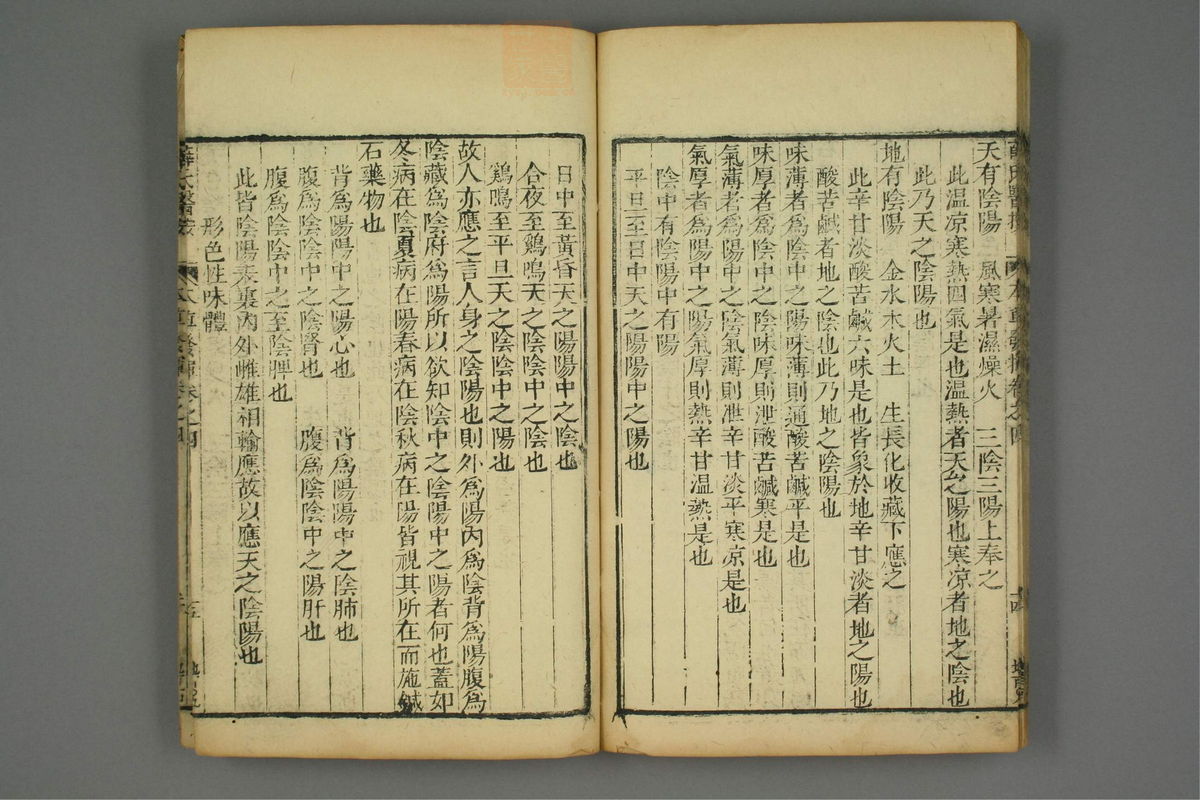 天有陰陽　風寒暑濕燥火　三陰三陽上奉之
此温凉寒熱四氣是也温熱者天之陽也寒凉者地之陰也
此乃天之陰陽也
地有陰陽　金水木火土　生長化收藏下應之
此辛甘淡酸苦鹹六味是也皆象於地辛甘淡者地之陽也
酸苦鹹者地之陰也此乃地之陰陽也
味薄者爲陰中之陽味薄則通酸苦鹹平是也
味厚者爲陰中之陰味厚則泄酸苦鹹寒是也
氣薄者爲陽中之陰氣薄則泄辛甘淡平寒凉是也
氣厚者爲陽中之陽氣厚則熱辛甘温熱是也
陰中有陰陽中有陽
平旦至日中天之陽陽中之陽也
日中至黃昏天之陽陽中之陰也
合夜至鷄鳴天之陰陰中之陰也
鷄鳴至平旦天之陰陰中之陽也
故人亦應之言人身之陰陽也則外爲陽內爲陰背爲陽腹爲
陰藏爲陰府爲陽所以欲知陰中之陰陽中之陽者何也蓋如
冬病在陰夏病在陽春病在陰秋病在陽皆視其所在而施鍼
石藥物也
背爲陽陽中之陽心也　背爲陽陽中之陰肺也
腹爲陰陰中之陰腎也　腹爲陰陰中之陽肝也
腹爲陰陰中之至陰脾也
此皆陰陽表裏內外雌雄相輸應故以應天之陰陽也
形色性味體